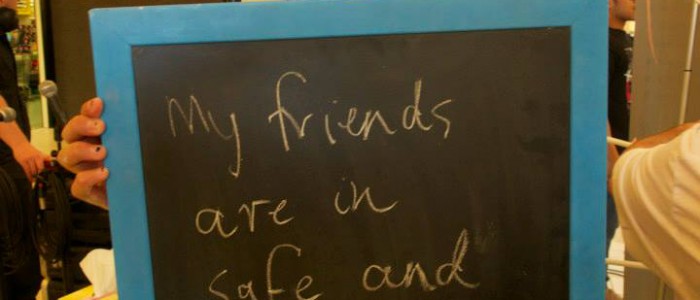 My friends
are in
safe and